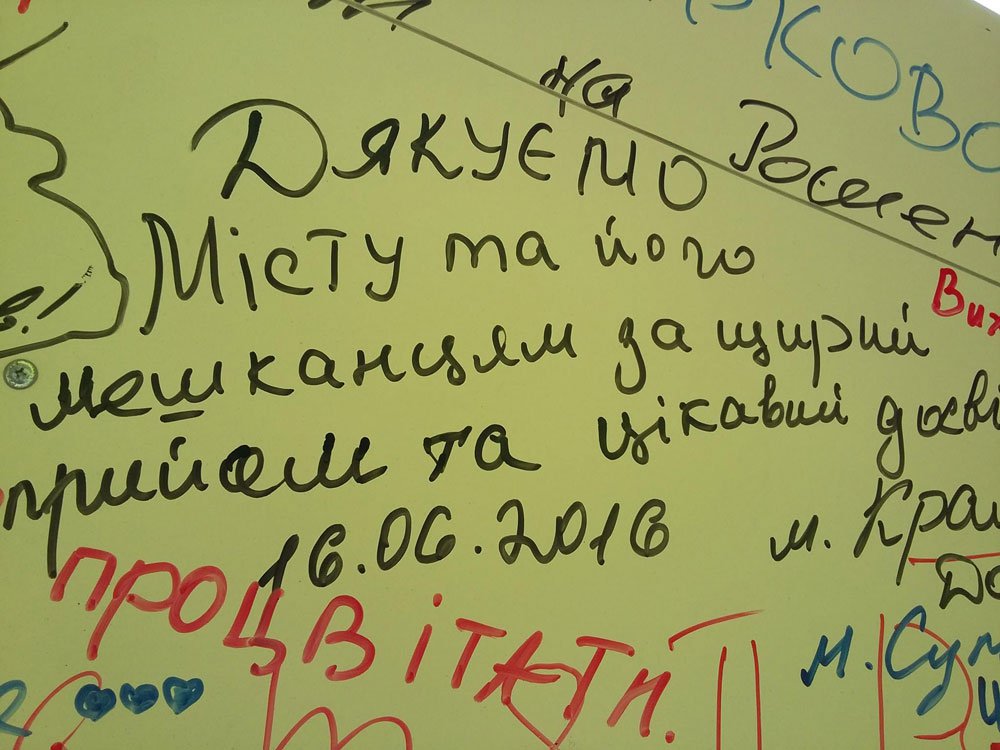 на
Дякуємо
Місту та його
мешканцям за щирий
прийом та цікавий досві
16.06.2016
м. Кра
процвітати.
м. Сум